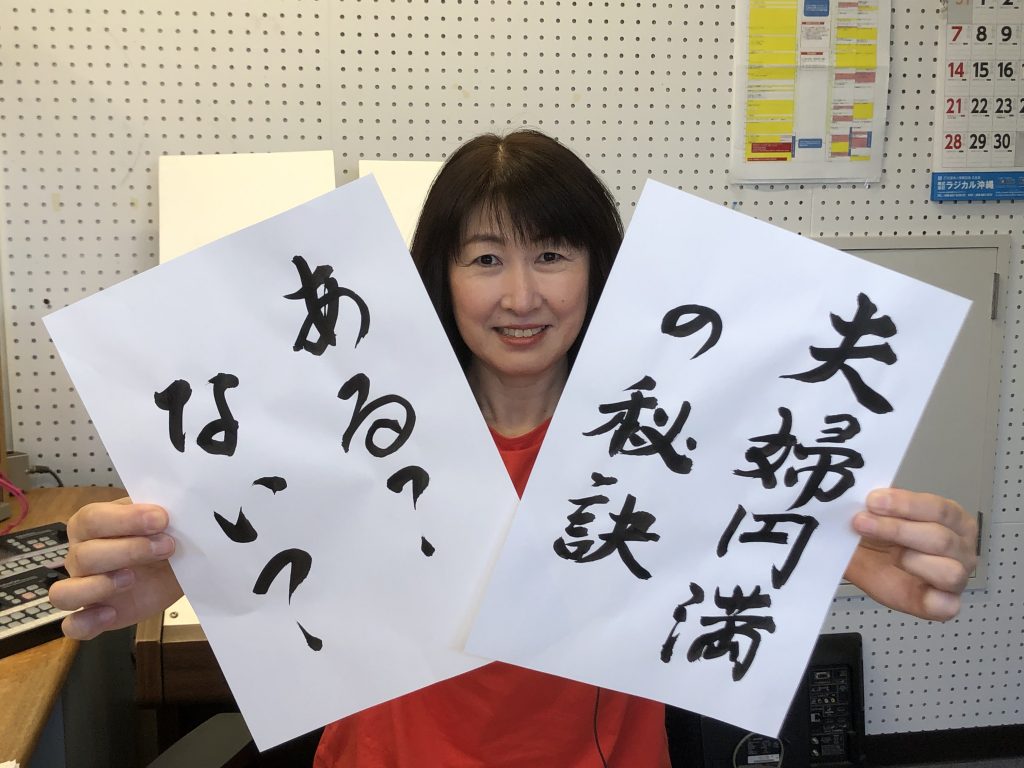 夫婦円満
の秘訣
ある?
ない?
7 8 9
14 15 16
21 22 23
28 29 30
ラジカル沖縄